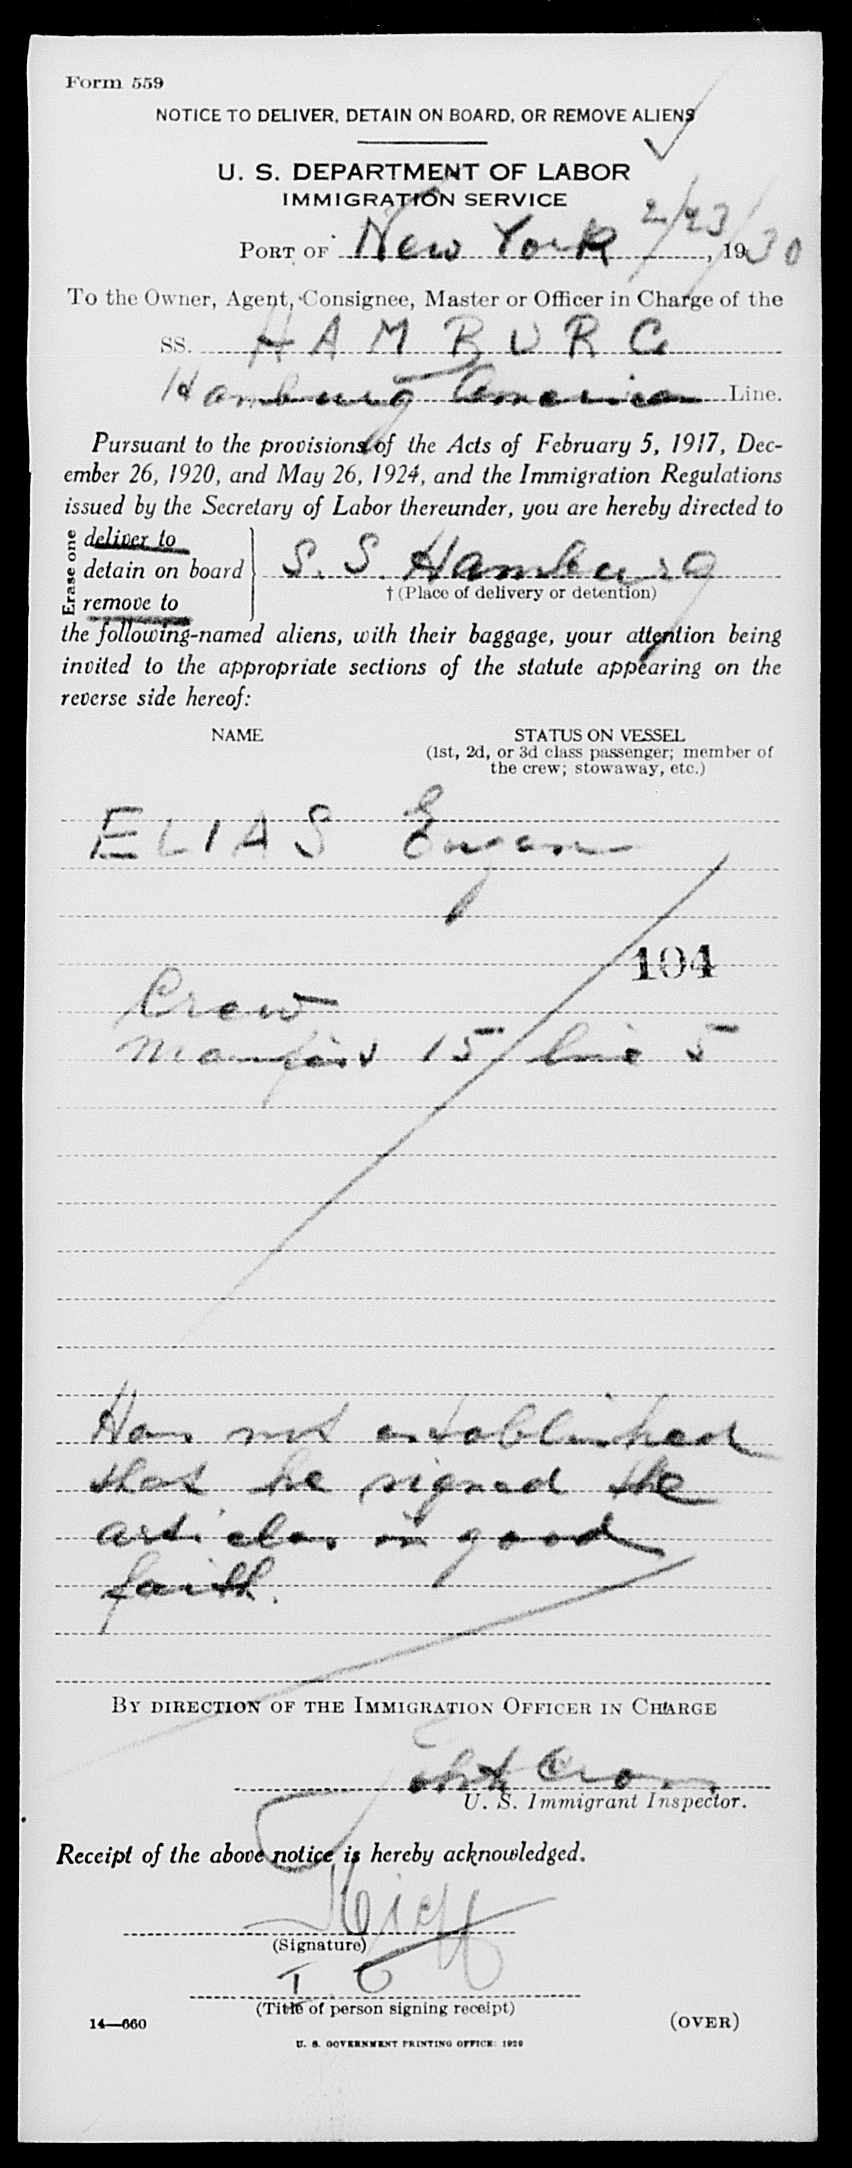 Form 559
NOTICE TO DELIVER, DETAIN ON BOARD, OR REMOVE ALIENS
U. S. DEPARTMENT OF LABOR
IMMIGRATION SERVICE
PORT OF New York 2/23/, 1930
To the Owner, Agent, Consignee, Master or Officer in Charge of the
SS. HAMBURG
Hamburg American Line.
Pursuant to the provisions of the Acts of February 5, 1917, Dec-
ember 26, 1920, and May 26, 1924, and the Immigration Regulations
issued by the Secretary of Labor thereunder, you are hereby directed to
Erase one
deliver to
detain on board
remove to
S. S. Hamburg
† (Place of delivery or detention)
the following-named aliens, with their baggage, your attention being
invited to the appropriate sections of the statute appearing on the
reverse side hereof:
NAME STATUS ON VESSEL
(1st, 2d, or 3d class passenger; member of
the crew; stowaway, etc.)
ELIAS Eugen
104
Crew
Manifest 15 line 5
Has not established
that he signed the
articles in good
faith.
BY DIRECTION OF THE IMMIGRATION OFFICER IN CHARGE
U. S. Immigrant Inspector.
Receipt of the above notice is hereby acknowledged.
(Signature)
(Title of person signing receipt)
14—660 (OVER)
U. S. GOVERNMENT PRINTING OFFICE: 1929